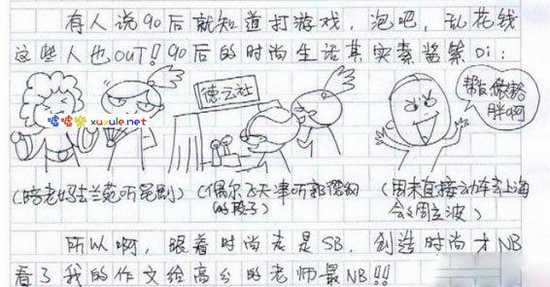 有人说90后就知道打游戏，泡吧，乱花钱
这些人也OUT!!90后的时尚生活其实素酱紫Di:
嘘嘘乐 xuxule.net
德云社
帮你做
胖啊
(陪老妈去兰苑听昆剧)
(偶尔飞天津听郭德纲
的段子)
(周末直接动车去上海
会会周立波)
所以啊，跟着时尚走是SB，创造时尚才NB
看了我的作文给高分的老师最NB!!!